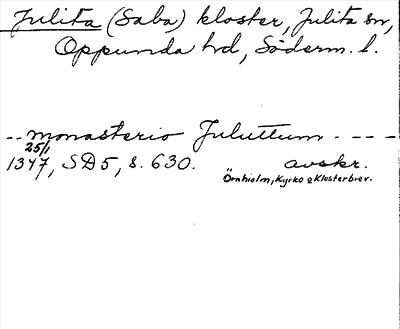 Julita (Saba) kloster, Julita sn,
Oppunda hd, Söderm. l.
-- monasterio Juluttum - - - -
25/1
1347, SD5, s. 630. avskr.
Örnhielm, Kyrko o Klosterbrev.